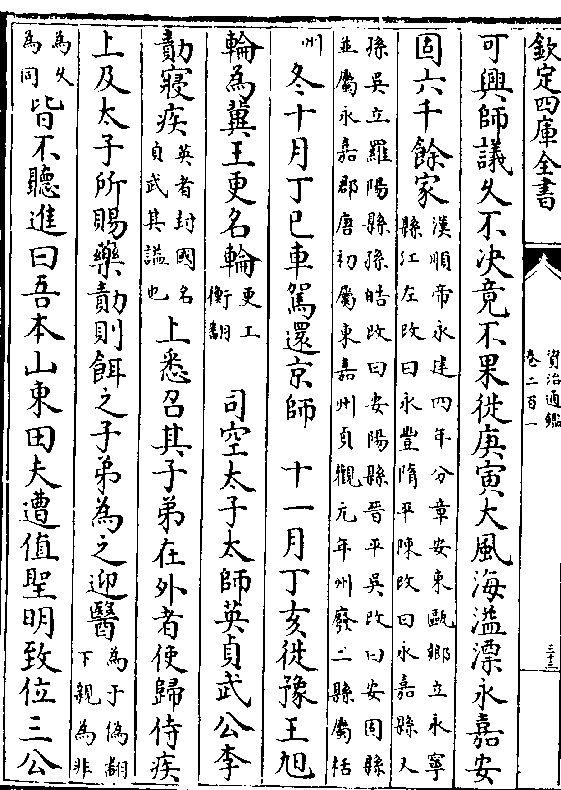 欽定四庫全書
資治通鑑
卷二百一
三十三
可興師議乆不决竟不果徙庚寅大風海溢漂永嘉安
固六千餘家
漢順帝永建四年分章安東甌鄉立永寧
縣江左改曰永豐隋平陳改曰永嘉縣又
孫吳立羅陽縣孫皓改曰安陽縣晉平吳改曰安固縣
並屬永嘉郡唐初屬東嘉州貞觀元年州廢二縣屬栝
州
冬十月丁巳車駕還京師 十一月丁亥徙豫王旭
輪為冀王更名輪
更工
衡翻
司空太子太師英貞武公李
勣寢疾
英者封國名
貞武其諡也
上悉召其子弟在外者使歸侍疾
上及太子所賜藥勣則餌之子弟為之迎醫
為于偽翻
下親為非
為乆
為同
皆不聽進曰吾本山東田夫遭值聖明致位三公